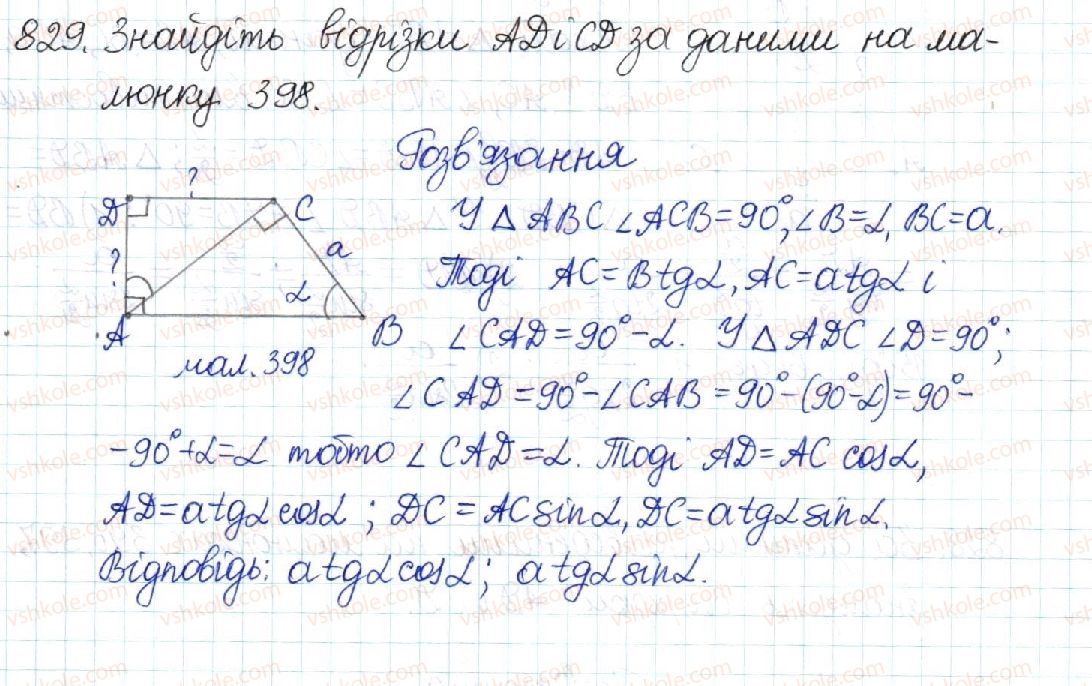 829. Знайдіть відрізки AD і CD за даними на ма-
люнку 398.
Розв'язання
D ? C
У △ABC ∠ACB=90°, ∠B=α, BC=a.
? a
Тоді AC=Btgα, AC=atgα і
α
A B
∠CAD=90°-α. У △ADC ∠D=90°;
мал. 398
∠CAD=90°-∠CAB=90°-(90°-α)=90°-
-90°+α=α тобто ∠CAD=α. Тоді AD=AC cosα,
AD=atgα cosα; DC=AC sinα, DC=atgα sinα.
Відповідь: atgα cosα; atgα sinα.